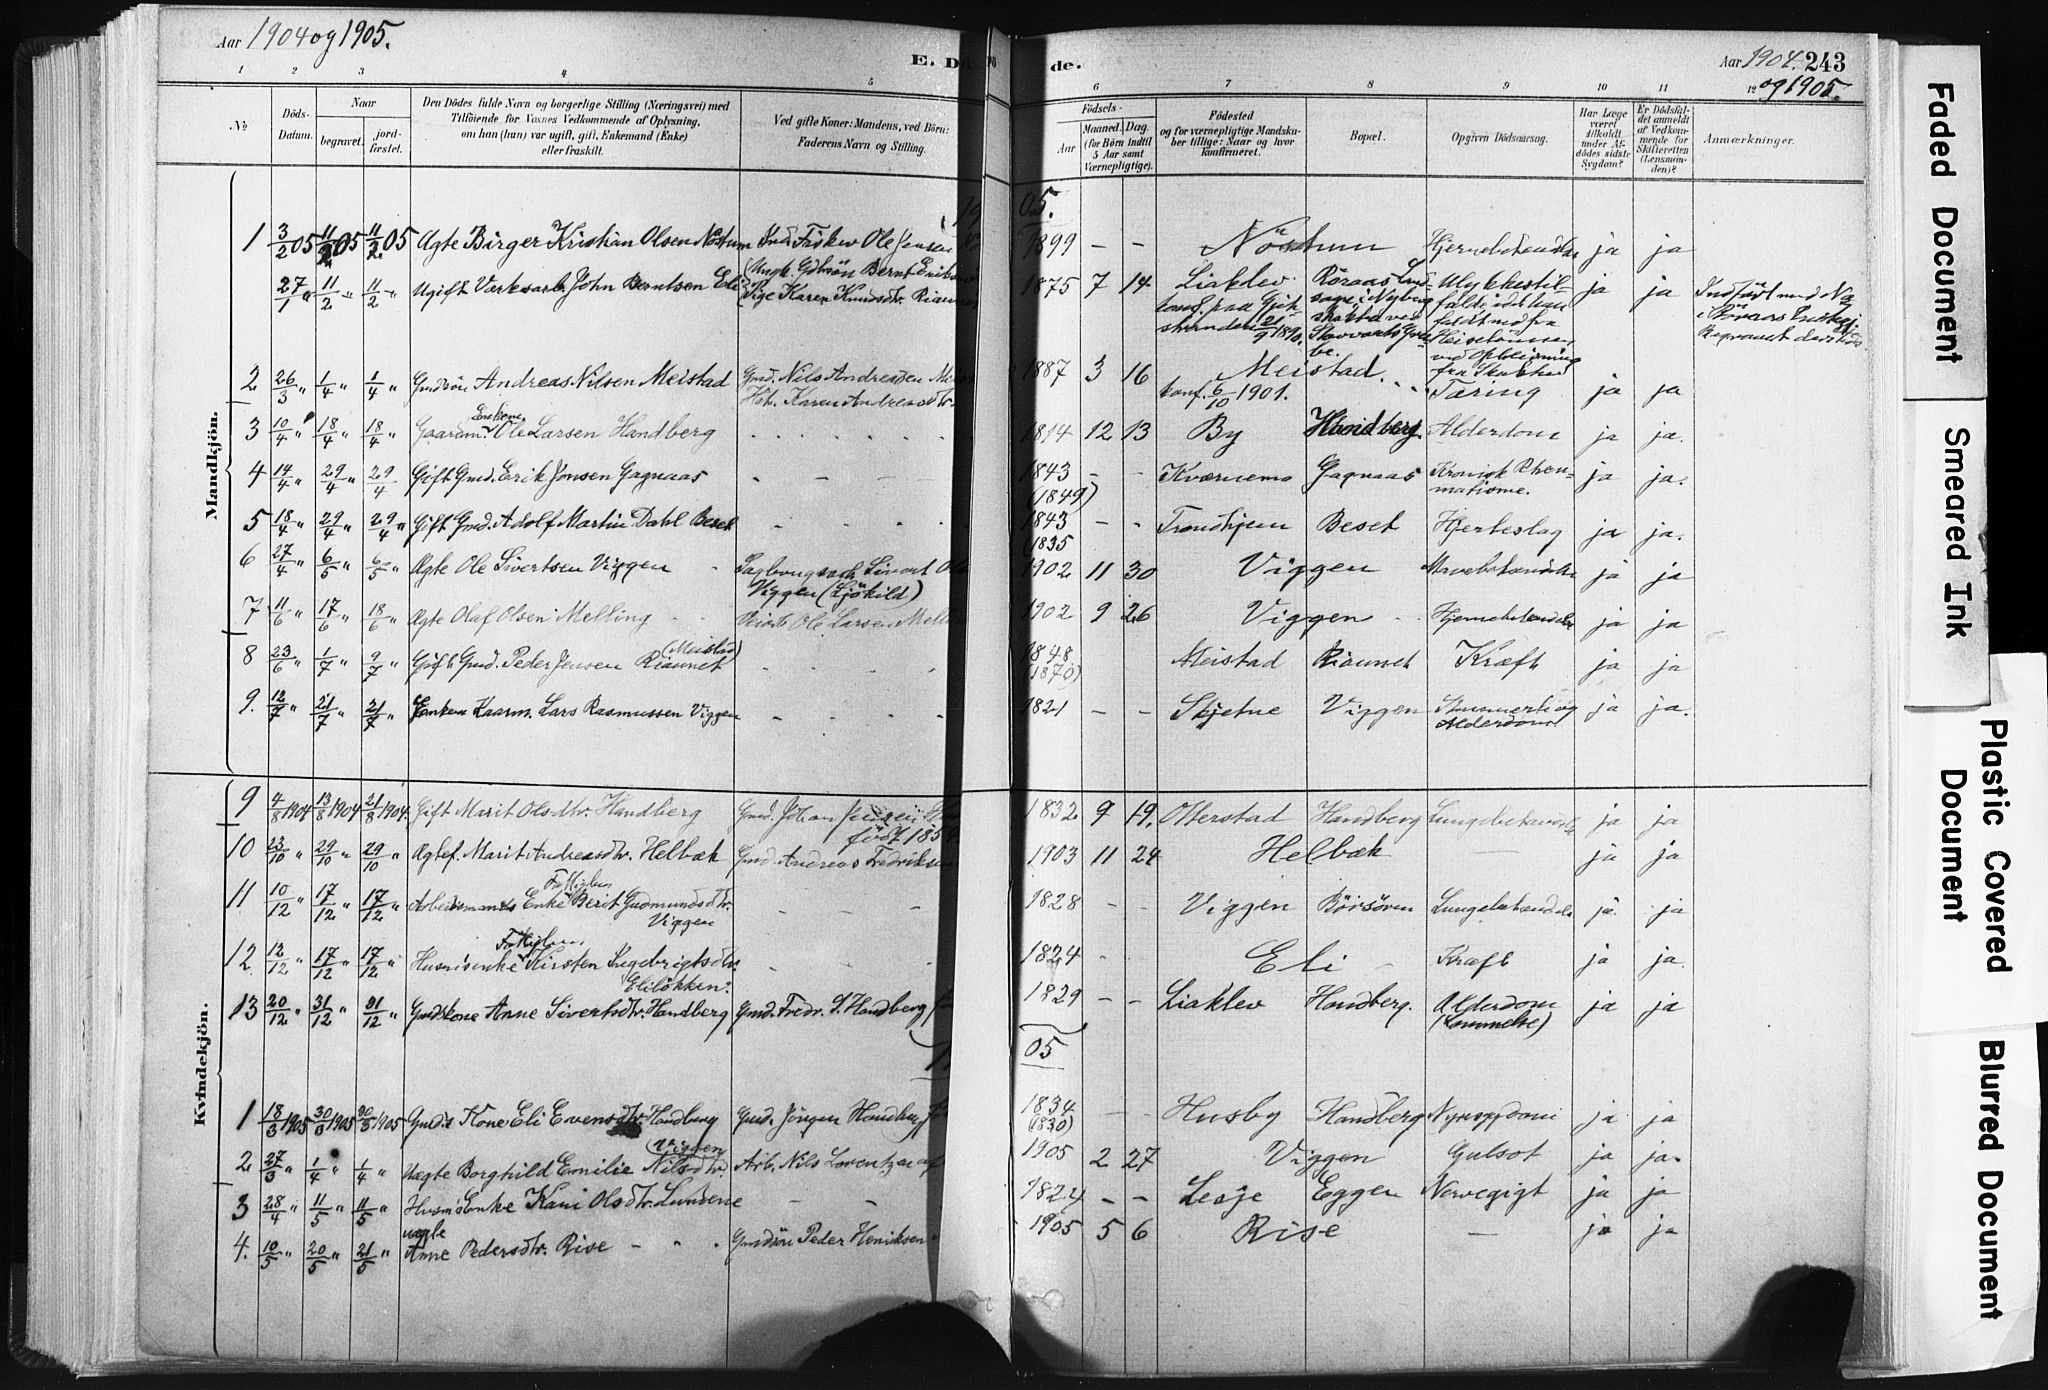 Aar 1904 og 1905.
E. Dö de.
Aar 1904. 243
og 1905.
1 2 3 4 5 6 7 8 9 10 11 12
No. Döds-Datum. Naar begravet. jord-fæstet. Den Dödes fulde Navn og borgerlige Stilling (Næringsvei) med Tilföiende for Voxnes Vedkommende af Oplysning, om han (hun) var ugift, gift, Enkemand (Enke) eller fraskilt. Ved gifte Koner: Mandens, ved Börn: Faderens Navn og Stilling. Födsels- Aar Maaned. Dag. (for Börn indtil 5 Aar samt Værnepligtige). Födested og for værnepligtige Mandskaber tillige: Naar og hvor konfirmeret. Bopæl. Opgiven Dödsaarsag. Har Læge været tilkaldt under Afdödes sidste Sygdom? Er Dödsfaldet anmeldt af Vedkommende for Skifteretten (Lensmanden)? Anmærkninger.
Mandkjön.
(19 05.
1 3/2 05 11/2 05 11/2 05 Ægte Birger Kristian Olsen Nöstum Ind. Fisker Ole Jensen 1899 – – Nöstum Hjernebetændelse ja ja
27/1 " 11/2 " 11/2 " Ugift Værksarb. John Berntsen Eli (Ungk. Gdbsön Bernt Eriksen Pige Karen Knudsdtr. Riaunet 1875 7 14 Liaklev. konf. paa 21/9 1890. Röraas Ulykkestilfælde idet han faldt ned fra Heisetönden ved Opheisning fra Skakten ja ja
2 26/3 " 1/4 " 1/4 " Gmdsön Andreas Nilsen Meistad Gmd. Nils Andreassen Hst. Karen Andreasdtr. 1887 3 16 Meistad konf. 6/10 1901. Tæring ja ja
3 10/4 " 18/4 " 18/4 " Gaardm. Enkem. Ole Larsen Handberg 1814 12 13 By Handberg Alderdom ja ja.
4 14/4 " 29/4 " 29/4 Gift Gmd. Erik Jonsen Gagnaas – – – 1843 (1849) – – Kværnemo Gagnaas Kronisk Rheumatisme. ja ja.
5 18/4 " 29/4 " 29/4 " Gift Gmd. Adolf Martin Dahl Beset 1843 (1835 – – Trondhjem Beset Hjerteslag ja ja.
6 27/4 " 6/5 " 6/5 " Ægte Ole Sivertsen Viggen Sagbrugsarb. Sivert Ols Viggen (Ljökild) 1902 11 30 Viggen Mavebetændelse ja ja
7 11/6 " 17/6 " 18/6 " Ægte Olaf Olsen Melling Ole Larsen Melling 1902 9 26 Viggen Hjernebetændelse ja ja
8 23/6 " 1/7 " 9/7 " Gift Gmd. Peder Jensen Riaunet (Meistad) 1848 (1870) Meistad Riaunet Kræft ja ja
9. 12/7 " 21/7 " 21/7 " Enkem. Kaarm. Lars Rasmussen Viggen 1821 – – Skjetne Viggen Alderdom ja ja.
Kvindekjön.
9 4/8 1904 13/8 1904 21/8 1904. Gift Marit Olsdtr. Handberg Gmd. Johan Jensen födt 1859. 1832 9 19. Otterstad Handberg Lungebetændelse ja ja
10 23/10 " 29/10 " 29/10 " Ægtef. Marit Andreasdtr. Helbæk Gmd. Andreas Fredriksen 1903 11 24 Helbæk – ja ja
11 10/12 " 17/12 " 17/12 " Arbeidsmands Enke Fattiglem Berit Gudmundsdtr. Viggen – – – 1828 – – Viggen Börsören Lungebetændelse ja ja
12 12/12 " 17/12 " 17/12 " Husm.s enke Fattiglem Kirsten Ingebrigtsdtr. Eliløkken. 1824 – – Eli Kræft ja ja.
13 20/12 " 31/12 " 31/12 " Gmdskone Anne Sivertsdtr. Handberg Gmd. Fredr. S. Handberg 1829 – – Liaklev Handberg. Alderdom (Lammelse) ja ja
05
1 18/3 1905 30/3 1905 30/3 1905 Gmds Kone Eli Evensdtr. Handberg Gmd. Jörgen Handberg 1834 (1830) – – Husby Handberg Nyresygdom ja ja
2 27/3 " 1/4 " 1/4 " Uægte Borghild Emilie Nilsdtr. (Viggen) Arb. Nils Lorentzen af 1905 2 27 Viggen Gulsot ja ja.
3 28/4 " 11/5 " 11/5 " Husm.s Enke Kari Olsdtr. Lunvene – – 1824 – – Lesje Eggen Nervegigt ja ja
4. 10/5 " 20/5 " 21/5 " uægte Anne Pedersdtr. Rise Gmdsön Peder Henriksen 1905 5 6 Rise – ja ja
Faded Document
Smeared Ink
Plastic Covered Document
Blurred Document